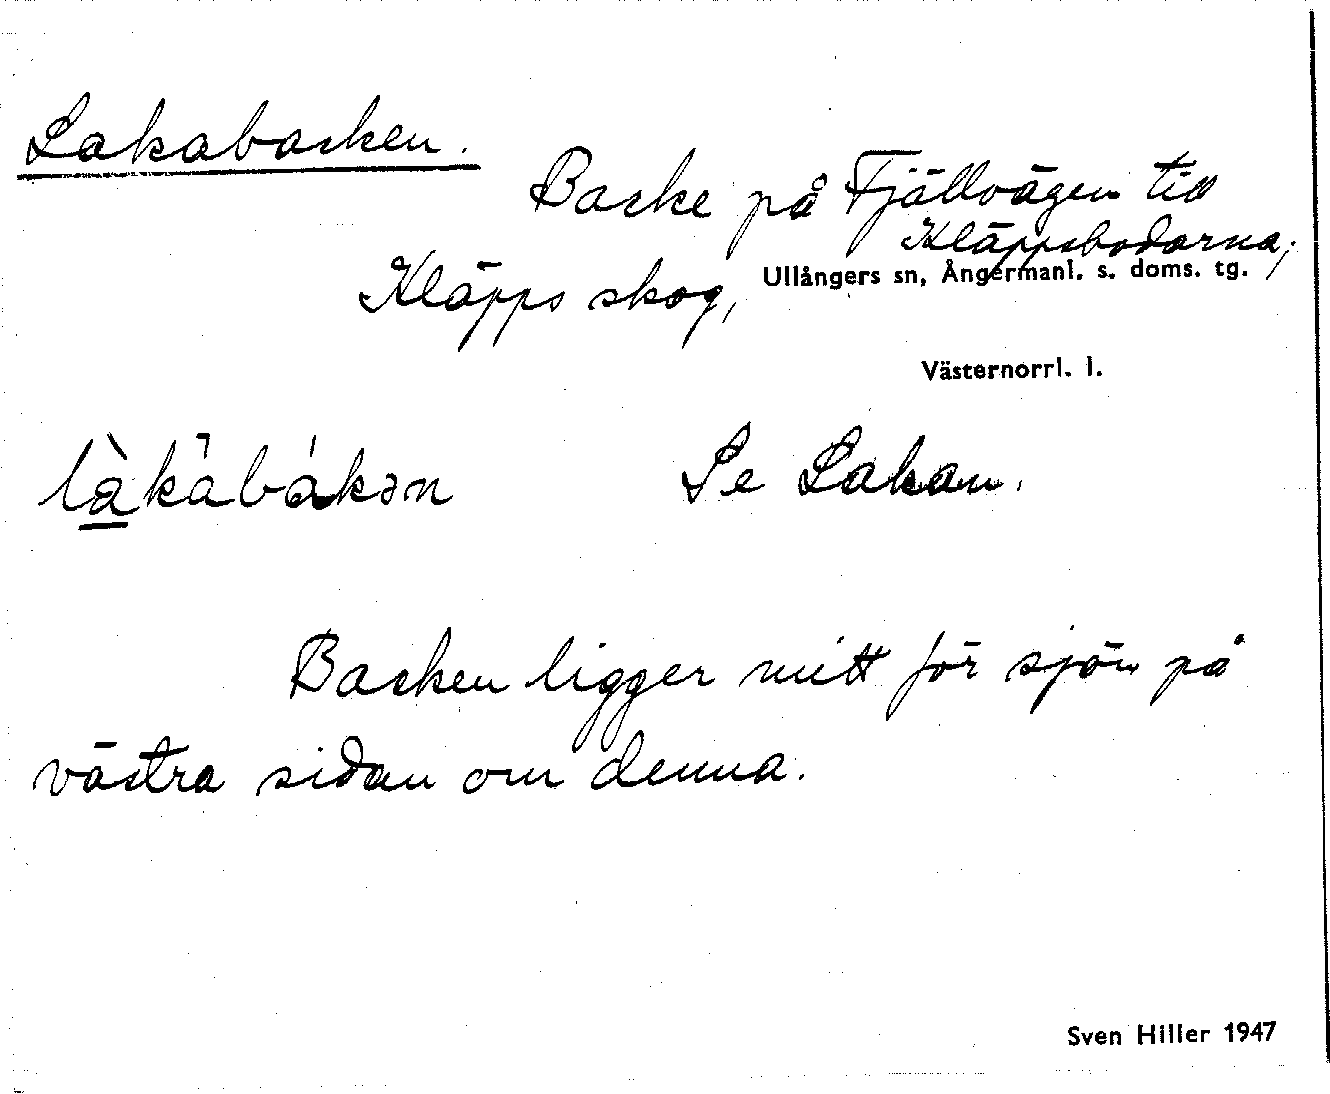 Lakabacken.
Backe på Fjällvägen till
Kläppsbodarna,
Kläpps skog, Ullångers sn, Ångermanl. s. doms. tg.
Västernorrl. l.
là̱kā̀bákən Se Lakan.
Backen ligger mitt för sjön på
västra sidan om denna.
Sven Hiller 1947